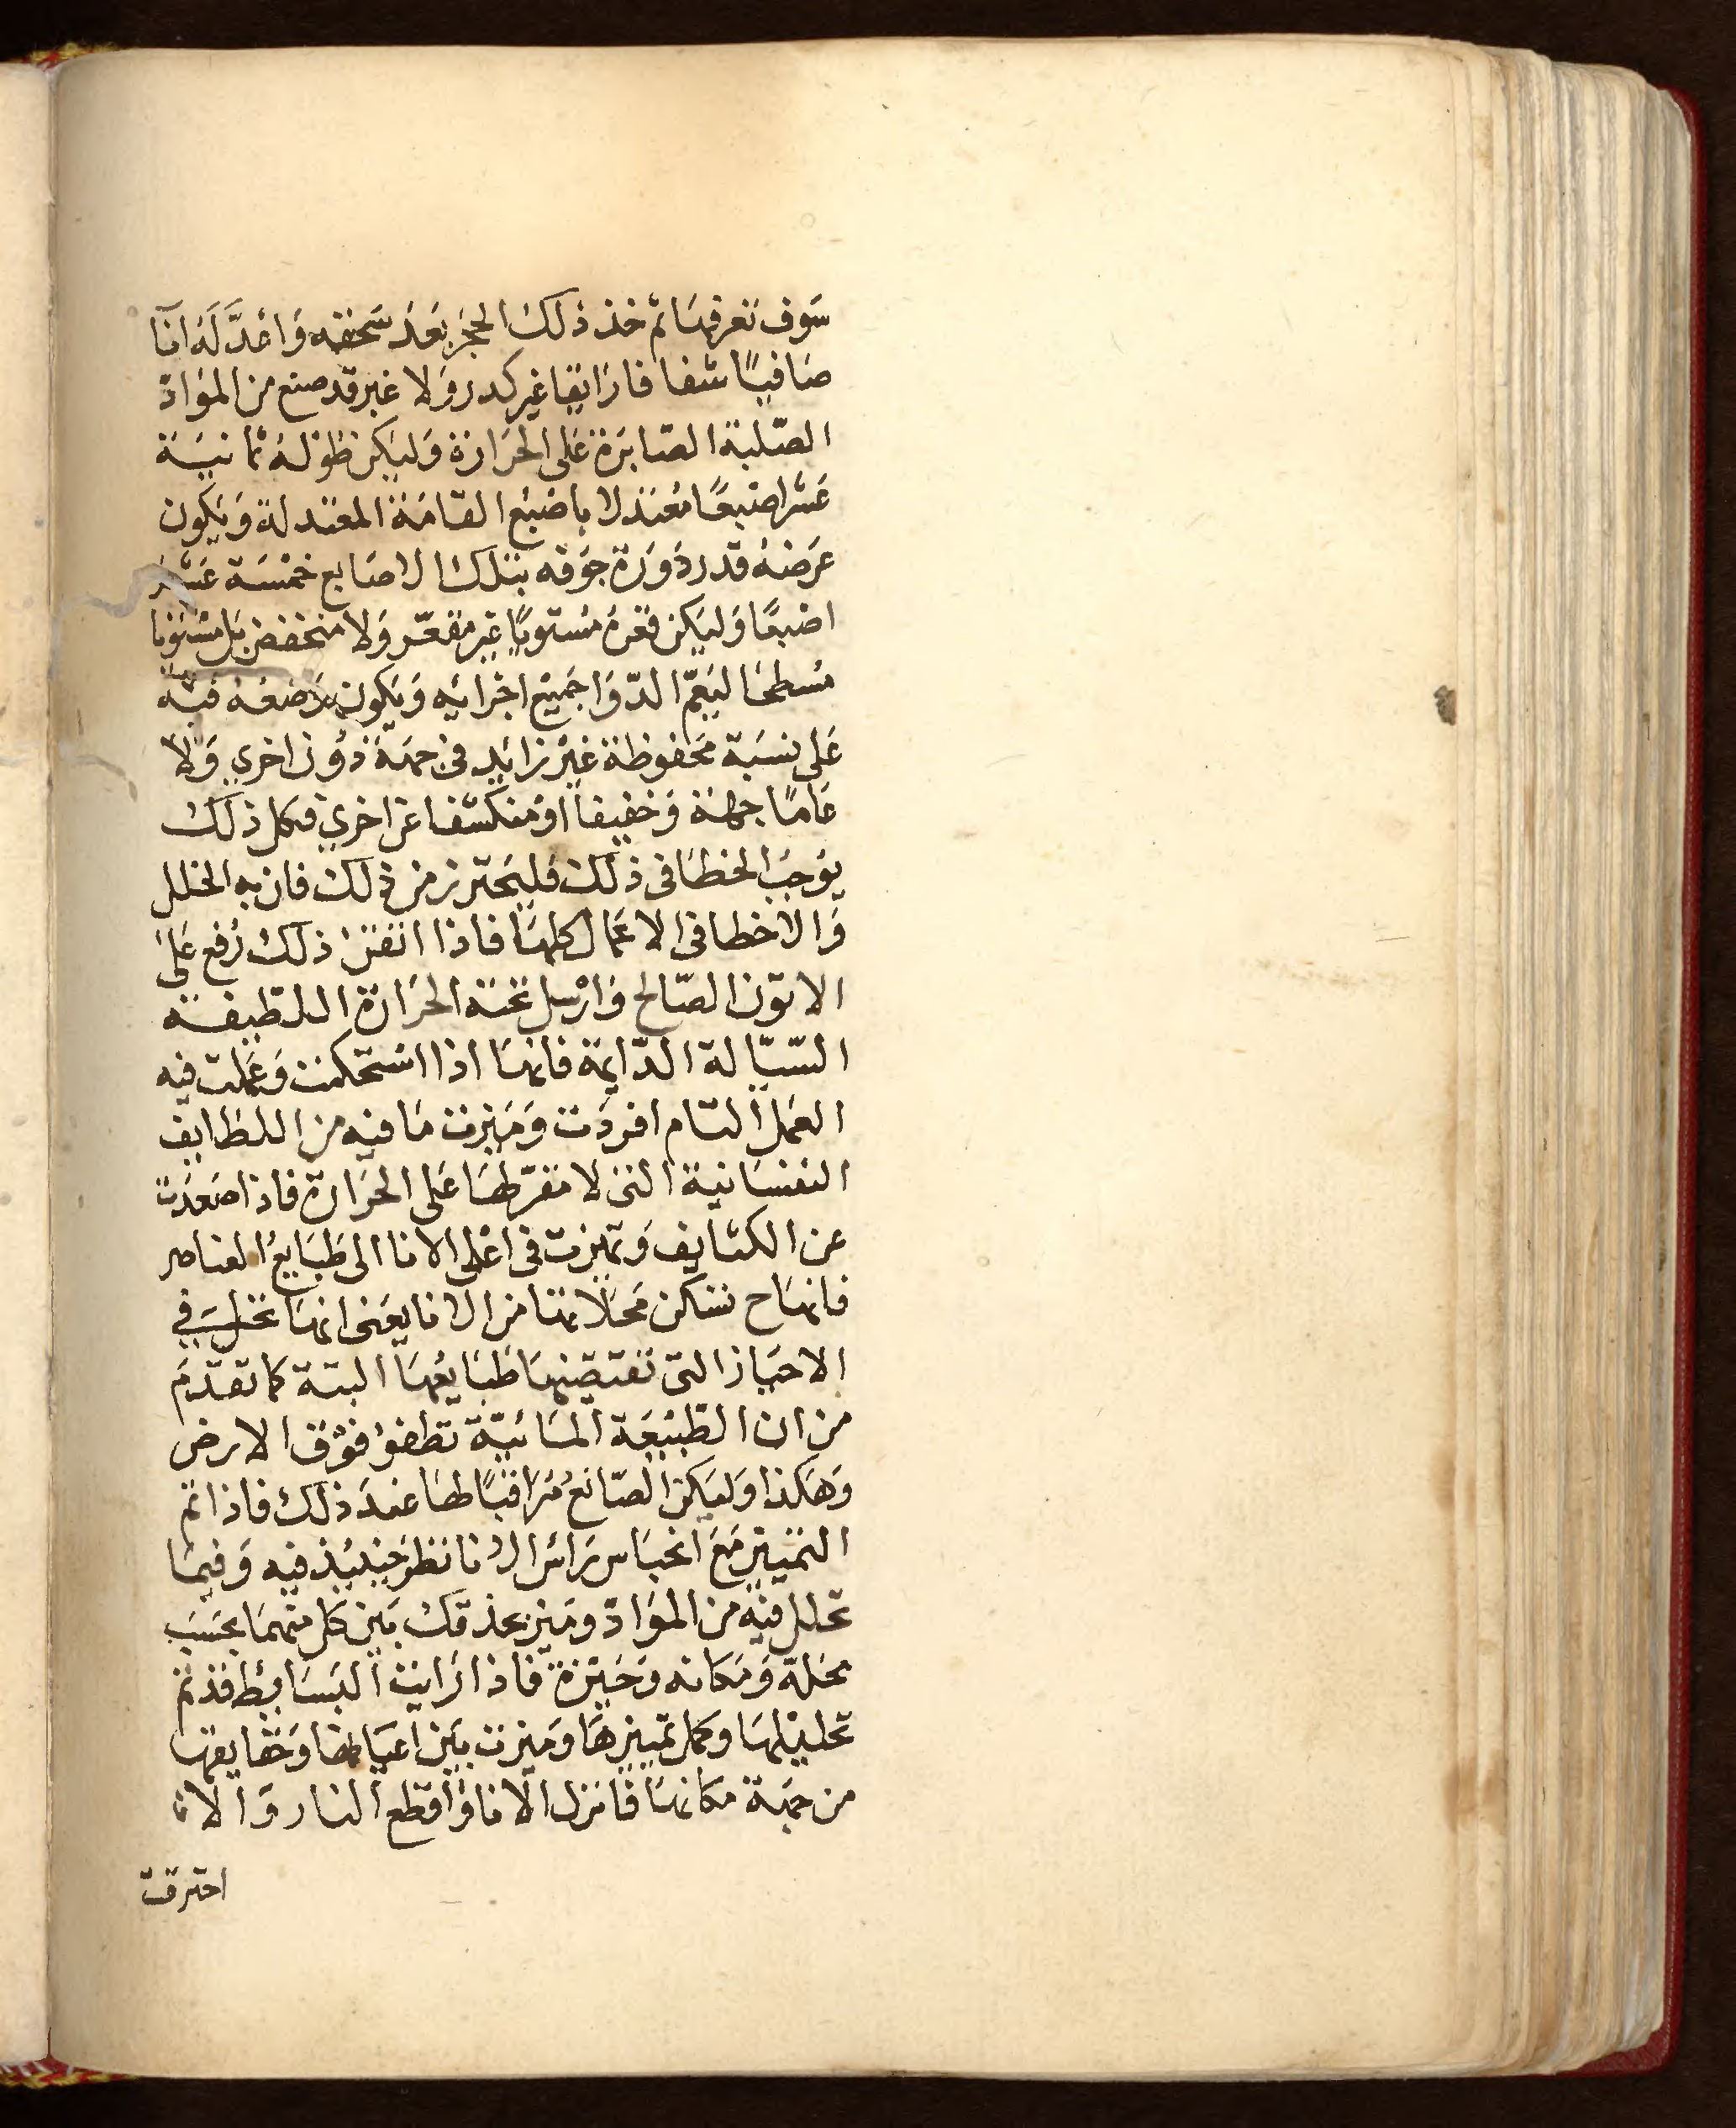 سَوف نعرفهَا ثم خذ ذلك الحجر بَعد سَحقه وَاعدَّ لَهُ انآ
صَافيًا شفافا رَايقا غير كدر وَلا غبر قد صنع من المَوادّ
الصّلبة الصّابرَة عَلى الحرَارة وَليَكن طوله ثمانيَة
عَشر اصبعًا مُعتدلا باصبُع القامَة المعتدلة وَيَكون
عَرضهُ قدر دَورَة جوفه بتلك الاصَابع خمسَة عَشر
اصبعًا وَليَكن قعرهُ مُستويًا غير مقعّر وَلا منخفض بَل مسْتويا
مُسطحَا ليَعمّ الدّوَا جَميْع اجزائه وَيَكون وَضعُه فيْه
عَلى نسبَة محَفوظة غيْر زائد فى جهَة دُون اخري وَلا
عَامًا جهة وَخفيفا اوْ منكشفا عن اخري فكل ذلك
يوُجبُ الخطَا فى ذلك فليَحترز من ذلك فان به الخلل
وَالاخطا فى الاعمال كلهَا فاذا اتقنْ ذلك رُفع عَلى
الاتون الصّالح وَارْسل تحته الحرَارة اللطّيفة
السّيّالة الدّايمة فانهَا اذا اسْتحكمت وَعَملت فيه
العَمل التام افردَت وَمَيزت مَا فيه من اللطايف
النفسَانية التى لا مقرّ لهَا عَلى الحرَارة فاذا صَعدَت
عن الكثايف وَتميزت فى اعْلى الانا الى طبَايعُ العناصر
فانهَاح تسكن مَحلاتها من الانا يعَنى انهَا تحل فى
الاحيَاز التى تقتضيهَا طبَايعُهَا البتة كما تقدّم
من ان الطّبيْعَة المَائيّة تطفوْ فوْق الارض
وَهَكذا وَليَكن الصّانعُ مُرَاقبًا لهَا عندَ ذلك فاذا تم
التمييز مَعَ انحبَاس رَاس الانا نظرَ حيْنئذ فيه وَفيمَا
تحلل فيْه من المَوادّ وميز بحذقك بَين كل منهمَا بحسَب
محَلهّ وَمَكانه وَحَيّزه فاذا رَايت البسَايط قد تم
تحليلهَا وكمل تمييزهَا وَميزت بيَن اعيَانها وَحقايقهَا
من جهَة مكانهَا فانزل الانا وَاقطع النار وَالا
احترقت